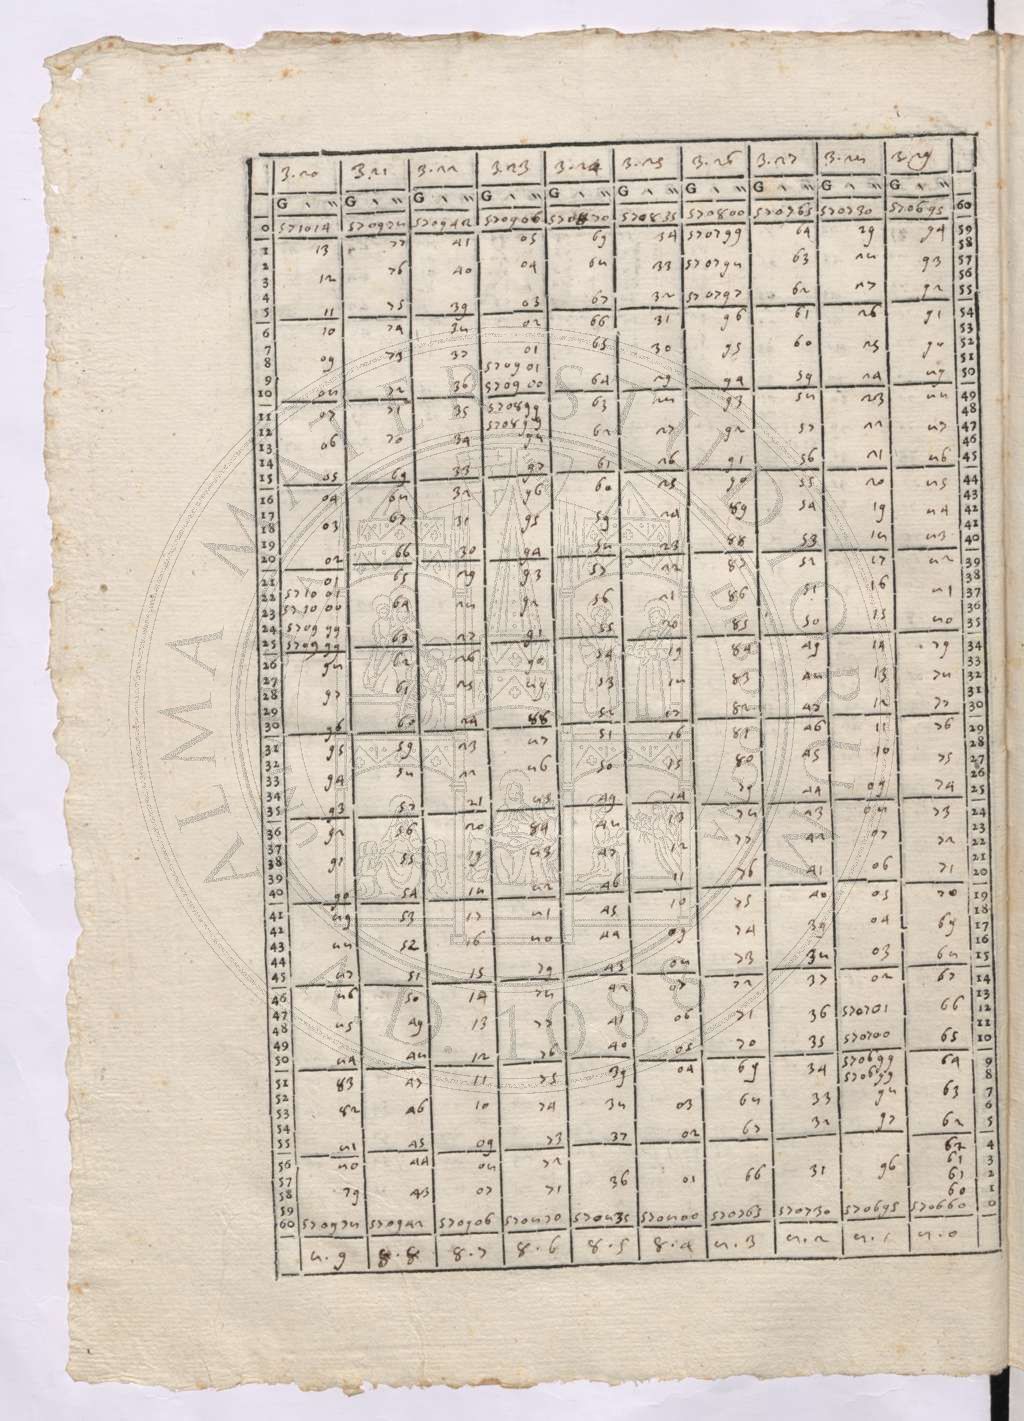 3.20 3.21 3.22 3.23 3.24 3.25 3.26 3.27 3.28 3.29
G ` `` G ` `` G ` `` G ` `` G ` `` G ` `` G ` `` G ` `` G ` `` G ` ``
0 571014 570978 570942 570906 570870 570835 570800 570765 570730 570695 60
1 13 77 41 05 69 34 570799 64 29 94 59
58
2 76 40 04 68 33 570798 63 28 93 57
3 12 56
4 11 75 39 03 67 32 570797 62 27 92 55
5
6 10 74 38 02 66 31 96 61 26 91 54
53
7 09 73 37 01 65 30 95 60 25 90 52
8 570901 51
9 08 72 36 570900 64 29 94 59 24 89 50
10
11 07 71 35 570899 63 28 93 58 23 88 49
48
12 570899 47
13 06 70 34 98 62 27 92 57 22 87 46
14 45
15 05 69 33 97 61 26 91 56 21 86
16 04 68 32 96 60 25 90 55 20 85 44
43
17 42
18 03 67 31 95 59 24 89 54 19 84 41
19 40
20 02 66 30 94 58 23 88 53 18 83
21 01 65 29 93 57 22 87 52 17 82 39
38
22 571001 37
23 571000 64 28 92 56 21 86 51 16 81 36
24 570999 35
25 570999 63 27 91 55 20 85 50 15 80
26 98 62 26 90 54 19 84 49 14 79 34
33
27 32
28 97 61 25 89 53 18 83 48 13 78 31
29 30
30 96 60 24 88 52 17 82 47 12 77
31 95 59 23 87 51 16 81 46 11 76 29
28
32 27
33 94 58 22 86 50 15 80 45 10 75 26
34 25
35 93 57 21 85 49 14 79 44 09 74
36 92 56 20 84 48 13 78 43 08 73 24
23
37 22
38 91 55 19 83 47 12 77 42 07 72 21
39 20
40 90 54 18 82 46 11 76 41 06 71
41 89 53 17 81 45 10 75 40 05 70 19
18
42 17
43 88 52 16 80 44 09 74 39 04 69 16
44 15
45 87 51 15 79 43 08 73 38 03 68
46 86 50 14 78 42 07 72 37 02 67 14
13
47 12
48 85 49 13 77 41 06 71 36 570701 66 11
49 10
50 84 48 12 76 40 05 70 35 570700 65
51 83 47 11 75 39 04 69 34 570699 64 9
570699 8
52 7
53 82 46 10 74 38 03 68 33 98 63 6
54 5
55 81 45 09 73 37 02 67 32 97 62
56 80 44 08 72 62 4
57 61 3
58 79 43 07 71 36 01 66 31 96 61 2
59 60 1
60 570978 570942 570906 570870 570835 570800 570765 570730 570695 570660 0
8.9 8.8 8.7 8.6 8.5 8.4 8.3 8.2 8.1 8.0
ALMA MATER STUDIORUM
A.D. 1088